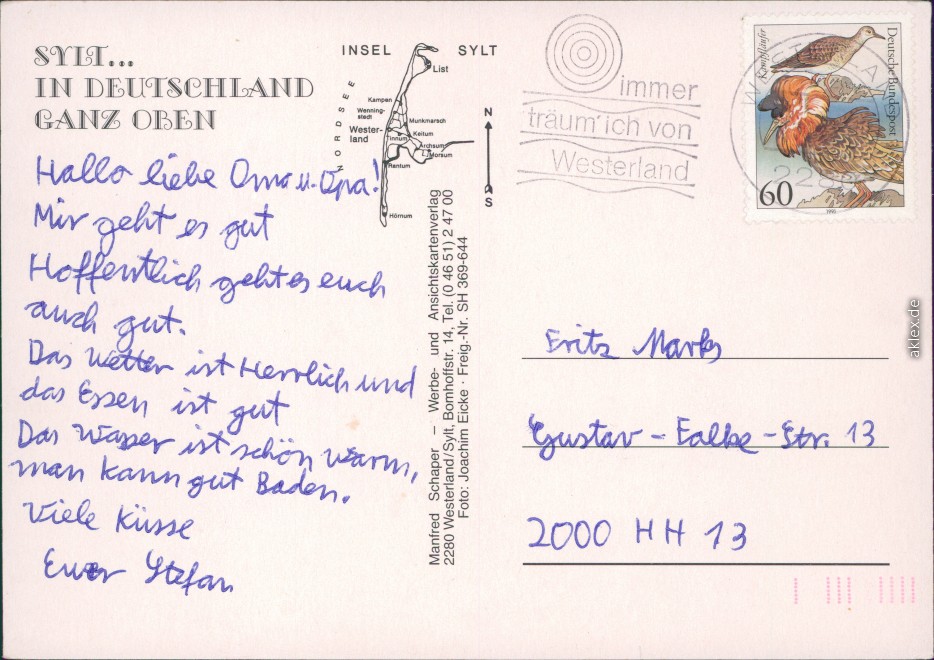 SYLT...
IN DEUTSCHLAND
GANZ OBEN
INSEL SYLT
NORDSEE
List
Kampen
Wenning-
stedt
Munkmarsch
Wester-
land
Keitum
Tinnum
Archsum
Morsum
Rantum
Hörnum
N
S
immer
träum' ich von
Westerland
Kampfläufer
Deutsche Bundespost
60
Hallo liebe Oma u. Opa!
Mir geht es gut
Hoffentlich geht es euch
auch gut.
Das Wetter ist Herrlich und
das Essen ist gut
Das Wasser ist schön warm,
man kann gut Baden.
Viele Küsse
Euer Stefan
Manfred Schaper – Werbe- und Ansichtskartenverlag
2280 Westerland/Sylt, Bomhoffstr. 14, Tel. (0 46 51) 2 47 00
Foto: Joachim Eicke · Freig.-Nr. SH 369-644
Fritz Marks
Gustav-Falke-Str. 13
2000 HH 13
aklex.de